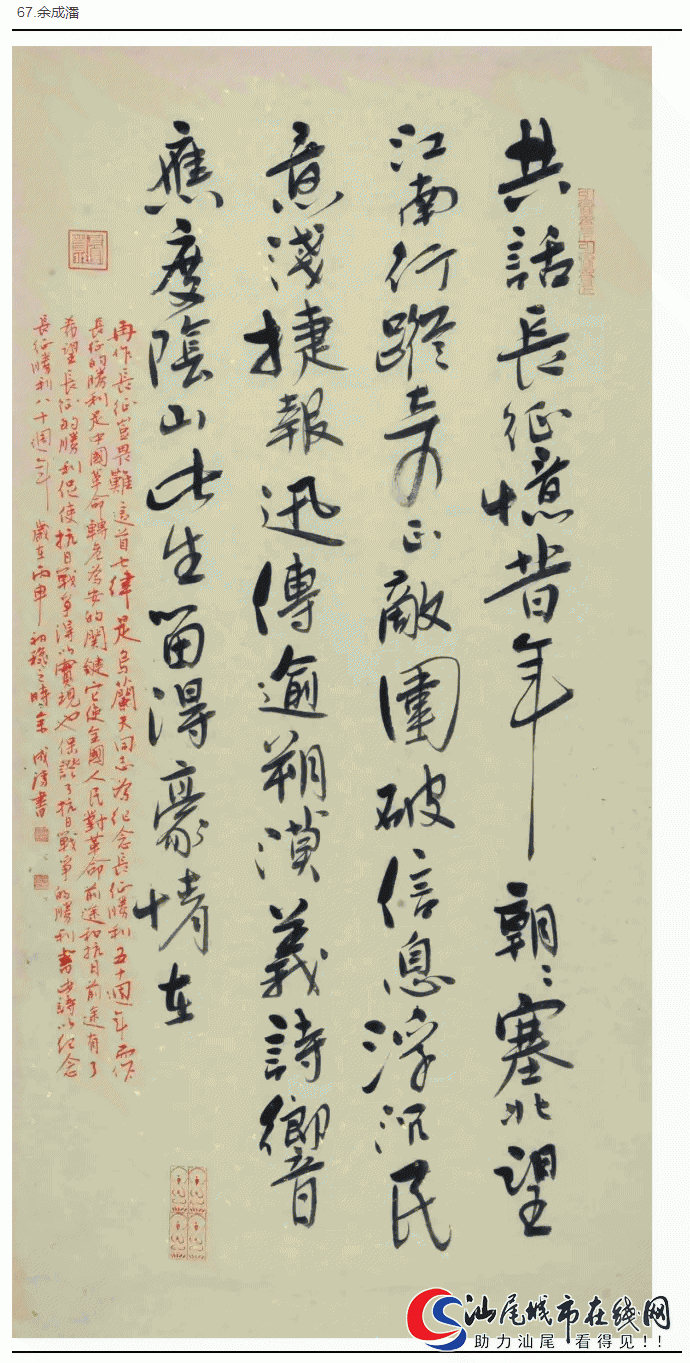 67.余成潘
共話長征憶昔年朝〻塞北望
江南行蹤奇正敵圍破信息浮沉民
意淺捷報迅傳逾朔漠義詩響
應度陰山此生留得豪情在
再作長征豈畏難這首七律是烏蘭夫同志為紀念長征勝利五十週年而作
長征的勝利是中國革命轉危為安的関鍵它使全國人民對革命前途和抗日前途有了
希望長征的勝利促使抗日戰爭得以實現也保證了抗日戰爭的勝利書此詩以紀念
長征勝利八十週年歲在丙申初穐之時余成潘書
汕尾城市在线网
助力汕尾 看得见!!